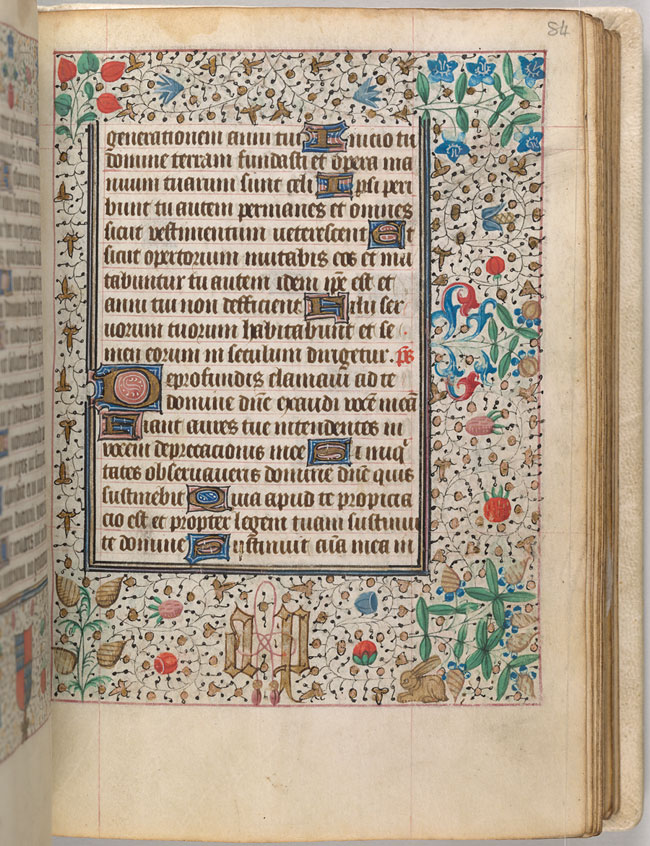 84
generationem anni tui Inicio tu
domine terram fundasti et opera ma
nuum tuarum sunt celi Ipsi peri
bunt tu autem permanes et omnes
sicut vestimentum veterescent Et
sicut opertorium mutabis eos et mu
tabuntur tu autem idem ipe est et
anni tui non defficient Filii ser
uorum tuorum habitabunt et se
men eorum in seculum dirigetur. ps
De profundis clamaui ad te
domine dne exaudi vocem meam
Fiant aures tue intendentes in
vocem deprecationis mee Si iniq
tates obseruaueris domine dne quis
sustinebit Quia apud te propicia
cio est et propter legem tuam sustinui
te domine Sustinuit aia mea in